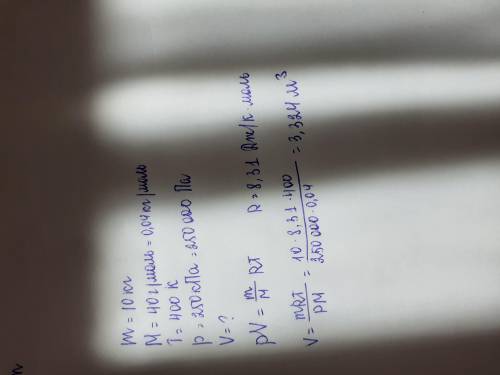 m = 10 кг
M = 40 г/моль = 0,04 кг/моль
T = 400 К
p = 250 кПа = 250 000 Па
V = ?
pV = m/M RT R = 8,31 Дж/К·моль
V = mRT/PM = 10·8,31·400/250 000·0,04 = 3,324 м³